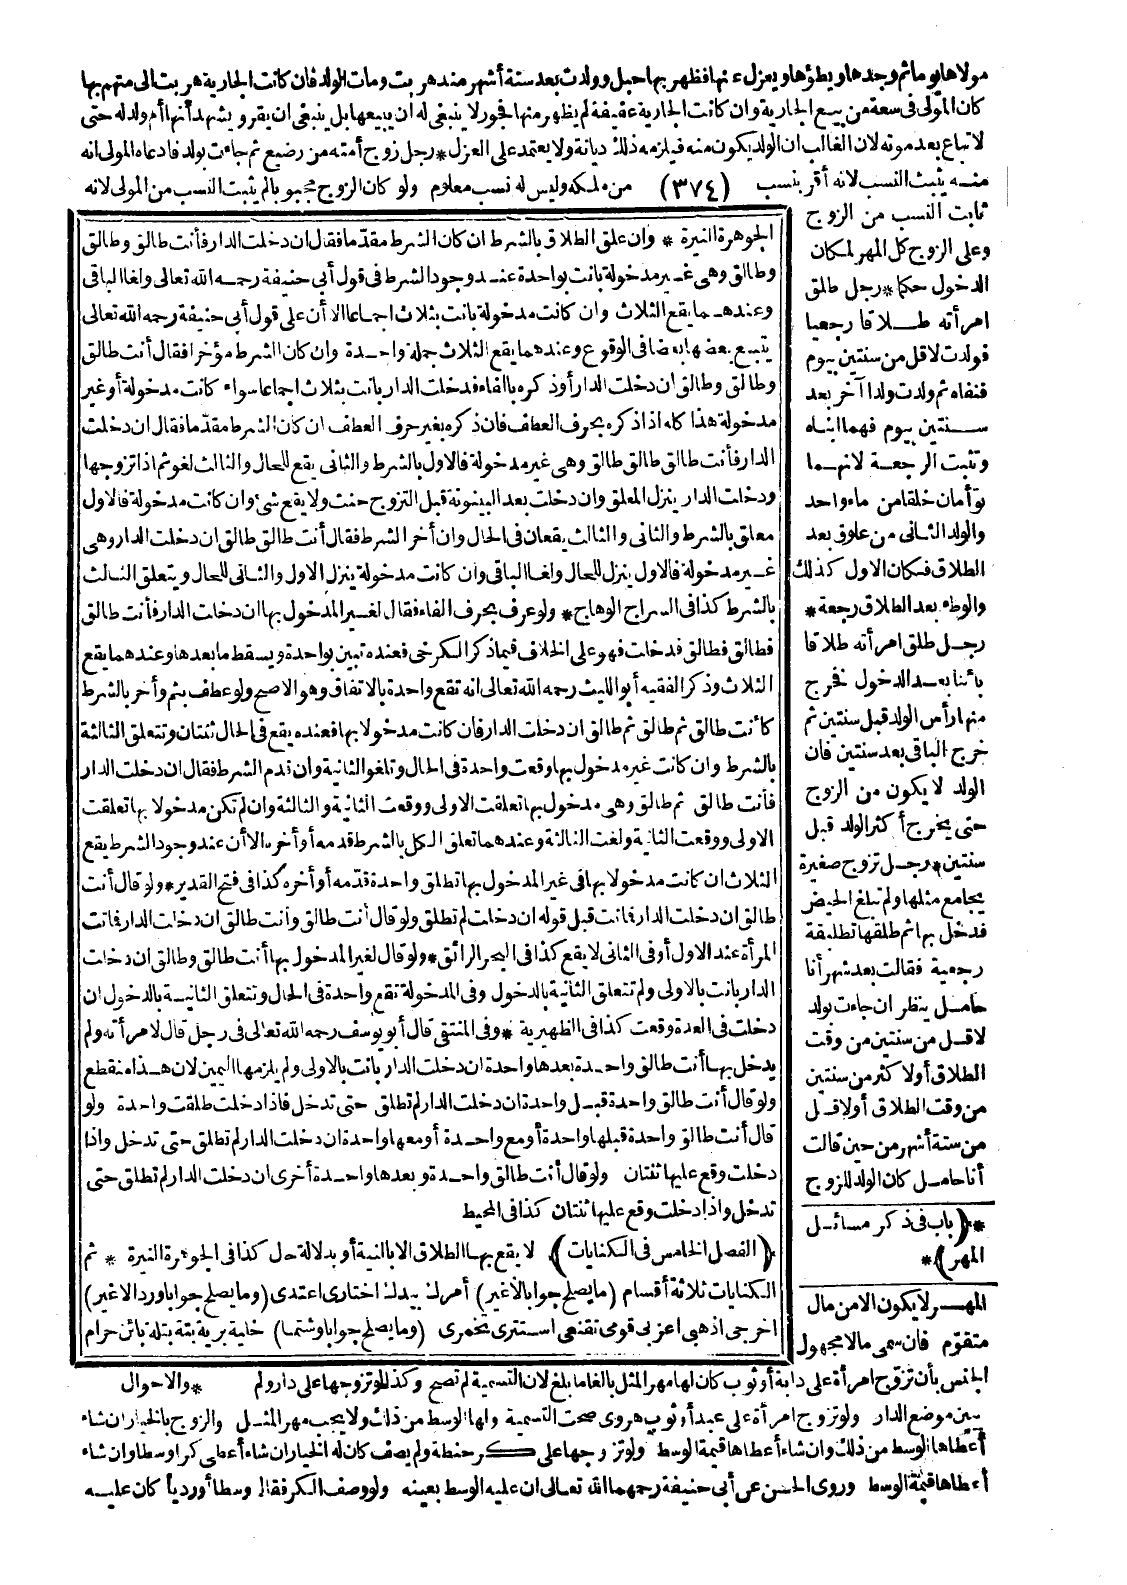 مولاها يوما ثم وجدها ويطؤها ويعزل عنها فظهر بها حبل وولدت بعد ستة أشهر منذ هربت ومات الولد فان كانت الجارية هربت الى متهم بها
كان المولى فى سعة من بيع الجارية وان كانت الجارية عفيفة لم يظهر منها فجور لا ينبغى له أن يبيعها بل ينبغى ان يقر ويشهد أنها أم ولد له حتى
لا تباع بعد موته لان الغالب ان الولد يكون منه فيلزمه ذلك ديانة ولا يعتمد على العزل * رجل زوج أمته من رضيع ثم جاءت بولد فادعاه المولى انه
منه يثبت النسب لانه أقر بنسب (٣٧٤) من ملكه وليس له نسب معلوم ولو كان الزوج مجبوبا لم يثبت النسب من المولى لانه
ثابت النسب من الزوج
وعلى الزوج كل المهر لمكان
الدخول حكما * رجل طلق
امرأته طلاقا رجعيا
فولدت لاقل من سنتين بيوم
فنفاه ثم ولدت ولدا آخر بعد
سنتين بيوم فهما ابناه
وتثبت الرجعة لانهما
توأمان خلقا من ماء واحد
والولد الثانى من علوق بعد
الطلاق فكان الاول كذلك
والوطء بعد الطلاق رجعة *
رجل طلق امرأته طلاقا
بائنا بعد الدخول فخرج
منها رأس الولد قبل سنتين ثم
خرج الباقى بعد سنتين فان
الولد لا يكون من الزوج
حتى يخرج أكثر الولد قبل
سنتين * رجل تزوج صغيرة
يجامع مثلها ولم تبلغ الحيض
فدخل بها ثم طلقها تطليقة
رجعية فقالت بعد شهر أنا
حامل ينظر ان جاءت بولد
لاقل من سنتين من وقت
الطلاق أو لاكثر من سنتين
من وقت الطلاق أو لاقل
من ستة أشهر من حين قالت
أنا حامل كان الولد للزوج
* ﴿باب فى ذكر مسائل
المهر﴾ *
المهر لا يكون الا من مال
متقوم فان سمى مالا مجهول
الجوهرة النيرة * وان علق الطلاق بالشرط ان كان الشرط مقدما فقال ان دخلت الدار فأنت طالق وطالق
وطالق وهى غير مدخولة بانت بواحدة عند وجود الشرط فى قول أبى حنيفة رحمه الله تعالى ولغا الباقى
وعندهما يقع الثلاث وان كانت مدخولة بانت بثلاث اجماعا الا أن على قول أبى حنيفة رحمه الله تعالى
يتبع بعضها بعضا فى الوقوع وعندهما يقع الثلاث جملة واحدة وان كان الشرط مؤخرا فقال أنت طالق
وطالق وطالق ان دخلت الدار أو ذكره بالفاء فدخلت الدار بانت بثلاث اجماعا سواء كانت مدخولة أو غير
مدخولة هذا كله اذا ذكره بحرف العطف فان ذكره بغير حرف العطف ان كان الشرط مقدما فقال ان دخلت
الدار فأنت طالق طالق طالق وهى غير مدخولة فالاول بالشرط والثانى يقع للحال والثالث لغو ثم اذا تزوجها
ودخلت الدار ينزل المعلق وان دخلت بعد البينونة قبل التزوج حنث ولا يقع شئ وان كانت مدخولة فالاول
معلق بالشرط والثانى والثالث يقعان فى الحال وان أخر الشرط فقال أنت طالق طالق طالق ان دخلت الدار وهى
غير مدخولة فالاول ينزل للحال ولغا الباقى وان كانت مدخولة ينزل الاول والثانى للحال ويتعلق الثالث
بالشرط كذا فى السراج الوهاج * ولو عرف بحرف الفاء فقال لغير المدخول بها ان دخلت الدار فأنت طالق
فطالق فطالق فدخلت فهو على الخلاف فيما ذكر الكرخى فعنده تبين بواحدة ويسقط ما بعدها وعندهما يقع
الثلاث وذكر الفقيه أبو الليث رحمه الله تعالى انه تقع واحدة بالاتفاق وهو الاصح ولو عطف بثم وأخر الشرط
كأنت طالق ثم طالق ثم طالق ان دخلت الدار فان كانت مدخولا بها فعنده يقع فى الحال ثنتان وتتعلق الثالثة
بالشرط وان كانت غير مدخول بها وقعت واحدة فى الحال وتلغو الثانية وان قدم الشرط فقال ان دخلت الدار
فأنت طالق ثم طالق وهى مدخول بها تعلقت الاولى ووقعت الثانية والثالثة وان لم تكن مدخولا بها تعلقت
الاولى ووقعت الثانية ولغت الثالثة وعندهما تعلق الكل بالشرط قدمه أو أخره الا أن عند وجود الشرط يقع
الثلاث ان كانت مدخولا بها فى غير المدخول بها تطلق واحدة قدمه أو أخره كذا فى فتح القدير * ولو قال أنت
طالق ان دخلت الدار فماتت قبل قوله ان دخلت لم تطلق ولو قال أنت طالق وأنت طالق ان دخلت الدار فماتت
المرأة عند الاول أو فى الثانى لا يقع كذا فى البحر الرائق * ولو قال لغير المدخول بها أنت طالق وطالق ان دخلت
الدار بانت بالاولى ولم تتعلق الثانية بالدخول وفى المدخولة تقع واحدة فى الحال وتتعلق الثانية بالدخول ان
دخلت فى العدة وقعت كذا فى الظهيرية * وفى المنتقى قال أبو يوسف رحمه الله تعالى فى رجل قال لامرأته ولم
يدخل بها أنت طالق واحدة بعدها واحدة ان دخلت الدار بانت بالاولى ولم يلزمها اليمين لان هذا منقطع
ولو قال أنت طالق واحدة قبل واحدة ان دخلت الدار لم تطلق حتى تدخل فاذا دخلت طلقت واحدة ولو
قال أنت طالق واحدة قبلها واحدة أو مع واحدة أو معها واحدة ان دخلت الدار لم تطلق حتى تدخل واذا
دخلت وقع عليها ثنتان ولو قال أنت طالق واحدة وبعدها واحدة أخرى ان دخلت الدار لم تطلق حتى
تدخل واذا دخلت وقع عليها ثنتان كذا فى المحيط
﴿الفصل الخامس فى الكنايات﴾ لا يقع بها الطلاق الا بالنية أو بدلالة حال كذا فى الجوهرة النيرة * ثم
الكنايات ثلاثة أقسام (ما يصلح جوابا لا غير) أمرك بيدك اختارى اعتدى (وما يصلح جوابا وردا لا غير)
اخرجى اذهبى اعزبى قومى تقنعى استترى تخمرى (وما يصلح جوابا وشتما) خلية برية بتة بتلة بائن حرام
الجنس بأن تزوج امرأة على دابة أو ثوب كان لها مهر المثل بالغا ما بلغ لان التسمية لم تصح وكذا لو تزوجها على دار ولم * والاحوال
يبين موضع الدار ولو تزوج امرأة على عبد أو ثوب هروى صحت التسمية ولها الوسط من ذلك ولا يجب مهر المثل والزوج بالخيار ان شاء
أعطاها الوسط من ذلك وان شاء أعطاها قيمة الوسط ولو تزوجها على كر حنطة ولم يصف كان له الخيار ان شاء أعطى كرا وسطا وان شاء
أعطاها قيمة الوسط وروى الحسن عن أبى حنيفة رحمهما الله تعالى ان عليه الوسط بعينه ولو وصف الكر فقال وسطا أو رديأ كان عليه